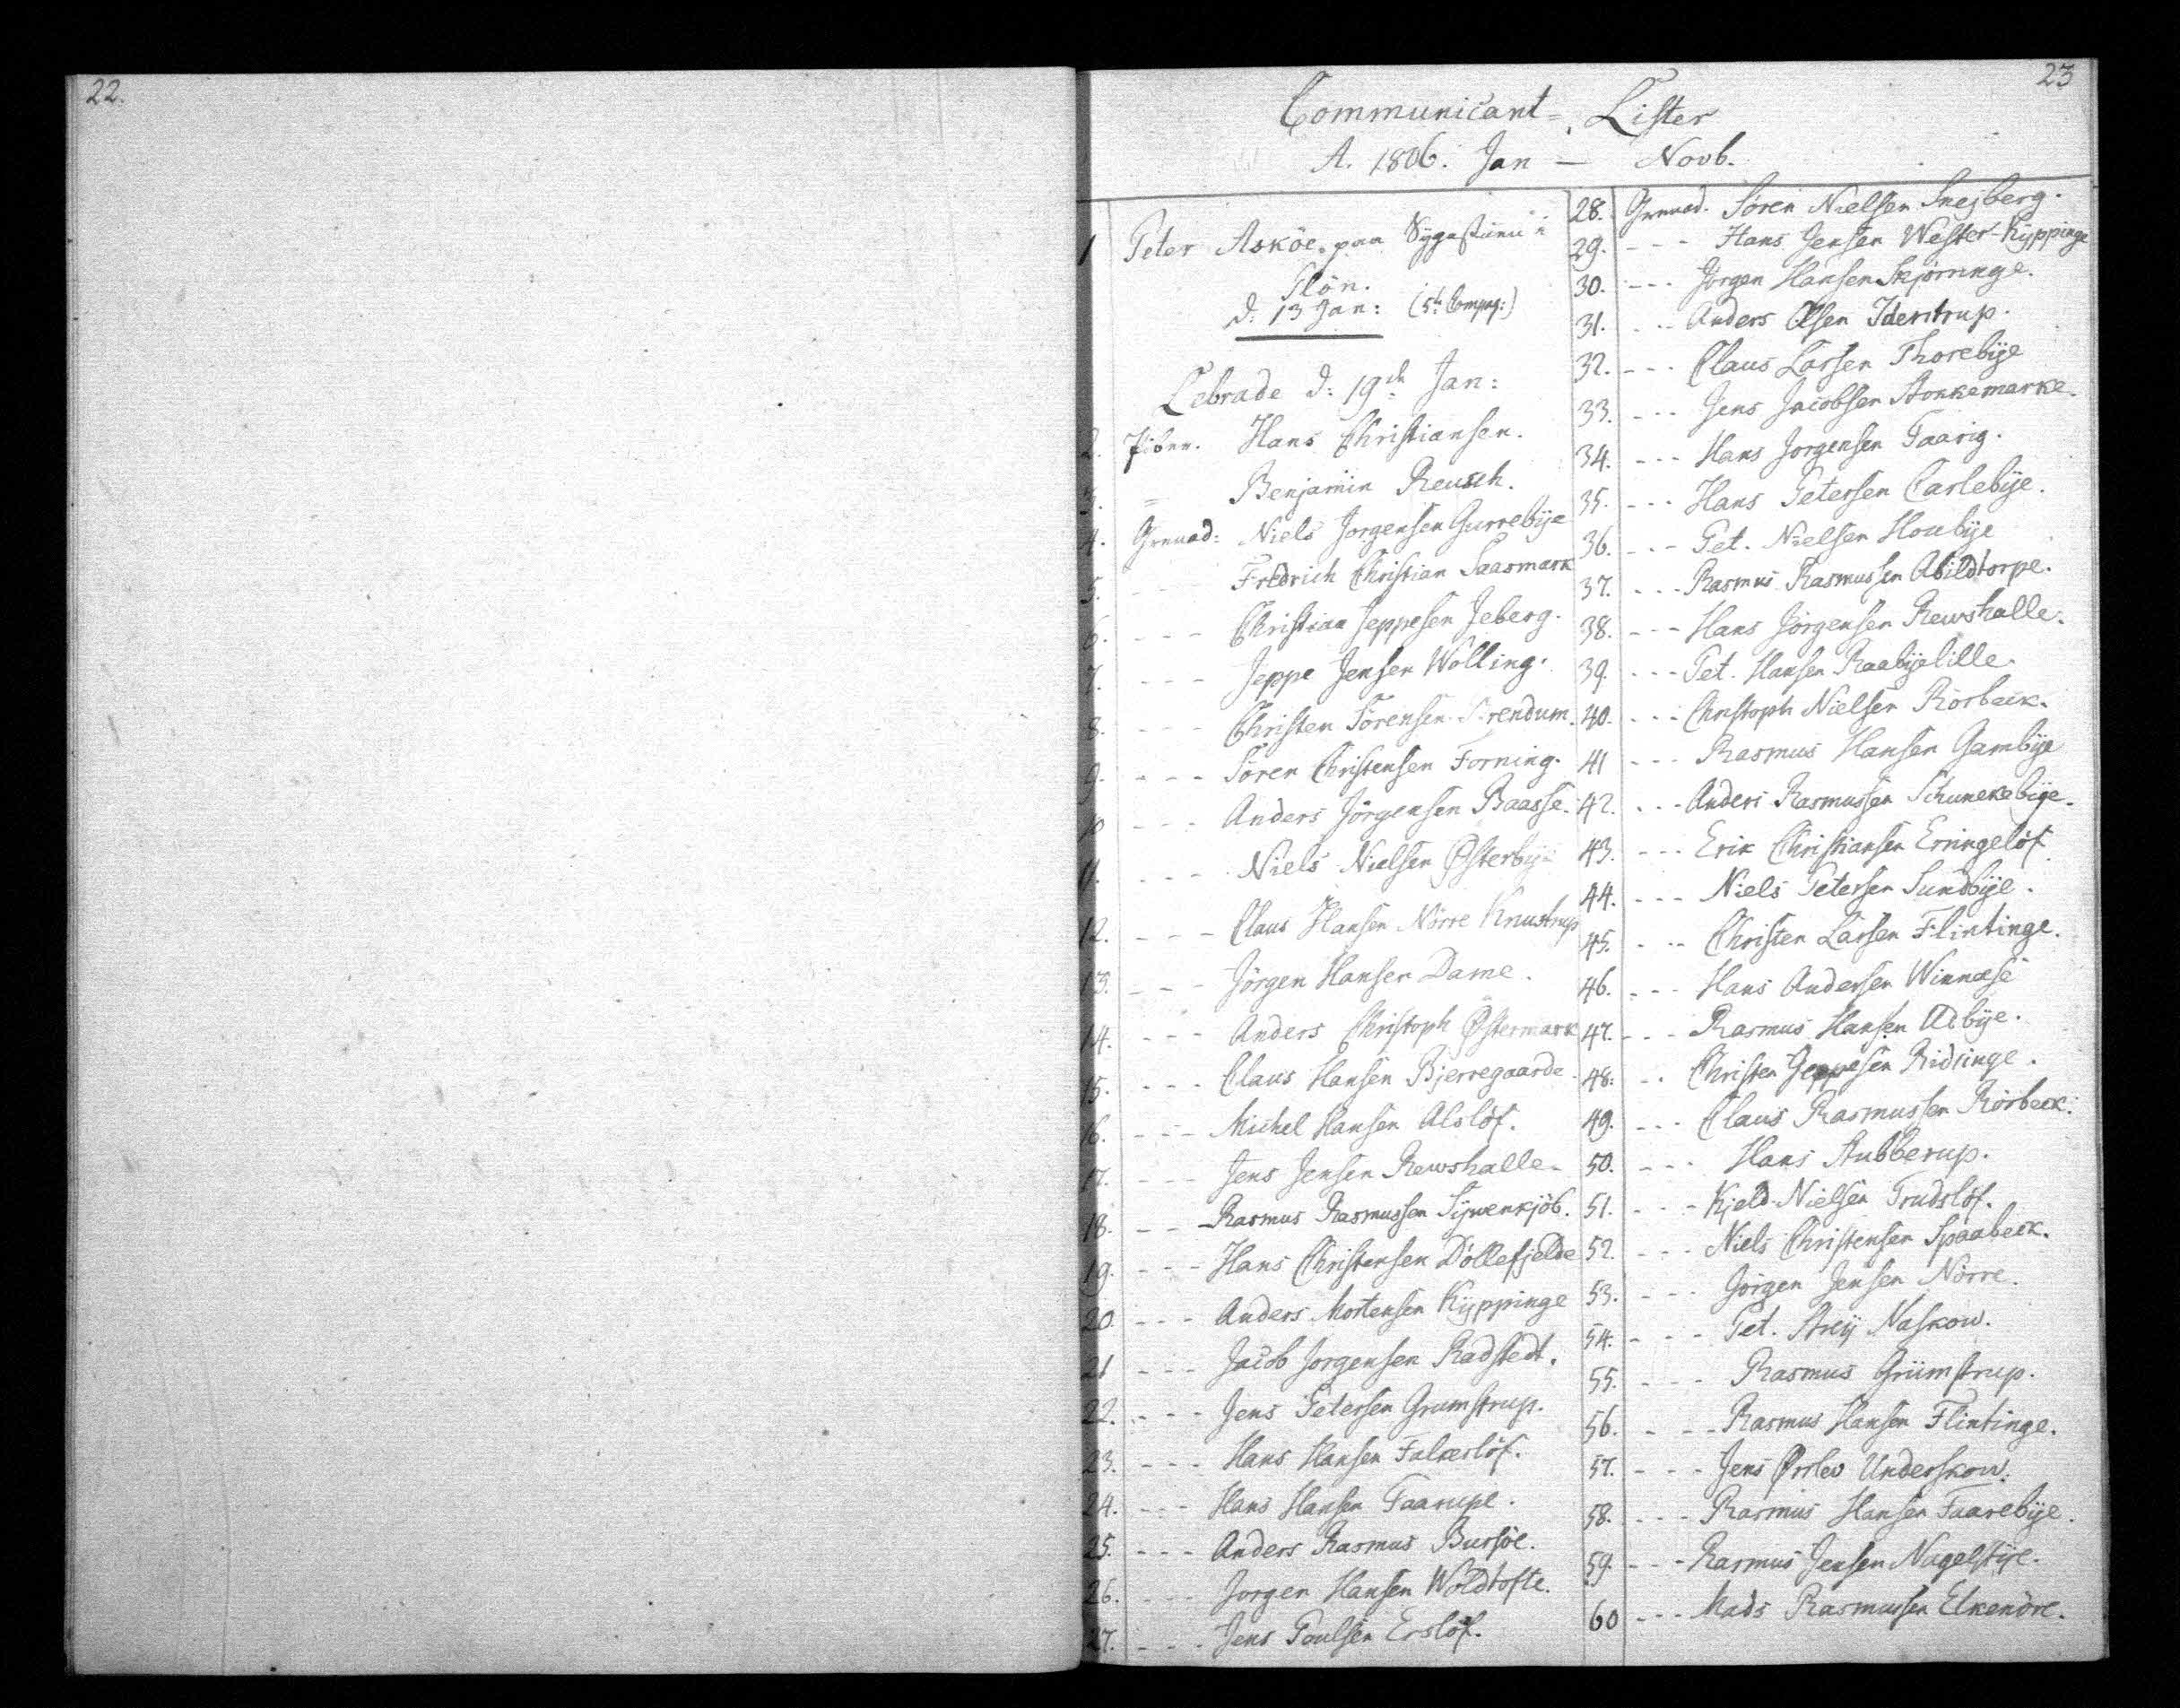 22.
23
Communicant= Lister
A. 1806. Jan — Novb.
1 Peter Asköe. paa Sygestuen i
Plön.
d. 13 Jan: (5t Compag:)
Lebrade d: 19de Jan:
2. Piben. Hans Christiansen.
3. = Benjamin Reusch.
4. Grenad: Niels Jorgensen Gurrebÿe
5. - - - Fridrich Christian Saasmark
6. - - - Christian Jeppesen Jeberg.
7. - - - Jeppe Jensen Wolling.
8. - - - Christen Sörensen
9. - - - Sören Christensen Forning.
10 - - - Anders Jörgensen Baasse.
11. - - - Niels Nielsen Østerbÿe
12. - - - Claus Hansen Nörre Knustrup
13. - - - Jörgen Hansen Dame.
14. - - - Anders Christoph Østermark
15. - - - Claus Hansen Bjerregaarde.
16. - - - Michel Hansen Alslöf.
17. - - - Jens Jensen Rewshalle.
18. - - - Rasmus Rasmussen Nÿwenkjöb.
19. - - - Hans Christensen Döllefjelde
20 - - - Anders Mortensen Kÿppinge
21 - - - Jacob Jorgensen Radstedt.
22. - - - Jens Petersen Grumstrup.
23. - - - Hans Hansen Falkerslöf.
24. - - - Hans Hansen Taarupe.
25. - - - Anders Rasmus Bursöe.
26. - - - Jorgen Hansen Woldtofte.
27. - - - Jens Poulsen Erslöf.
28. Grenad. Sören Nielsen Snejberg.
29. - - - Hans Jensen Wester-Kÿppinge
30. - - - Jörgen Hansen Skjörringe.
31. - - - Anders Olsen Idestrup.
32. - - - Claus Larsen Thorebÿe
33. - - - Jens Jacobsen Stokkemarke.
34. - - - Hans Jorgensen Taarig.
35. - - - Hans Petersen Carlebÿe.
36. - - - Pet. Nielsen Houbÿe
37. - - - Rasmus Rasmussen Abildtorpe.
38. - - - Hans Jörgensen Rewshalle.
39. - - - Pet. Hansen Raabÿelille.
40. - - - Christoph Nielsen Rörbeck.
41 - - - Rasmus Hansen Gambÿe
42. - - - Anders Rasmussen
43. - - - Erik Christiansen Erringelöf
44. - - - Niels Petersen Sundbÿe.
45. - - - Christen Larsen Flintinge.
46. - - - Hans Andersen Winnæse
47. - - - Rasmus Hansen Udbÿe.
48: - - Christen Jeppesen Ridsinge.
49. - - - Claus Rasmussen Rörbeck.
50. - - - Hans Stubberup.
51. - - - Kjeld Nielsen Trudslöf.
52. - - - Niels Christensen Spaabeck.
53. - - - Jörgen Jensen Nörre.
54. - - - Pet. Naskow.
55. - - - Rasmus Grümstrup.
56. - - - Rasmus Hansen Flintinge.
57. - - - Jens Ørslev Underskow.
58. - - - Rasmus Hansen Faarebÿe.
59. - - - Rasmus Jensen Nagelstÿe.
60 - - - Mads Rasmussen Elkendre.